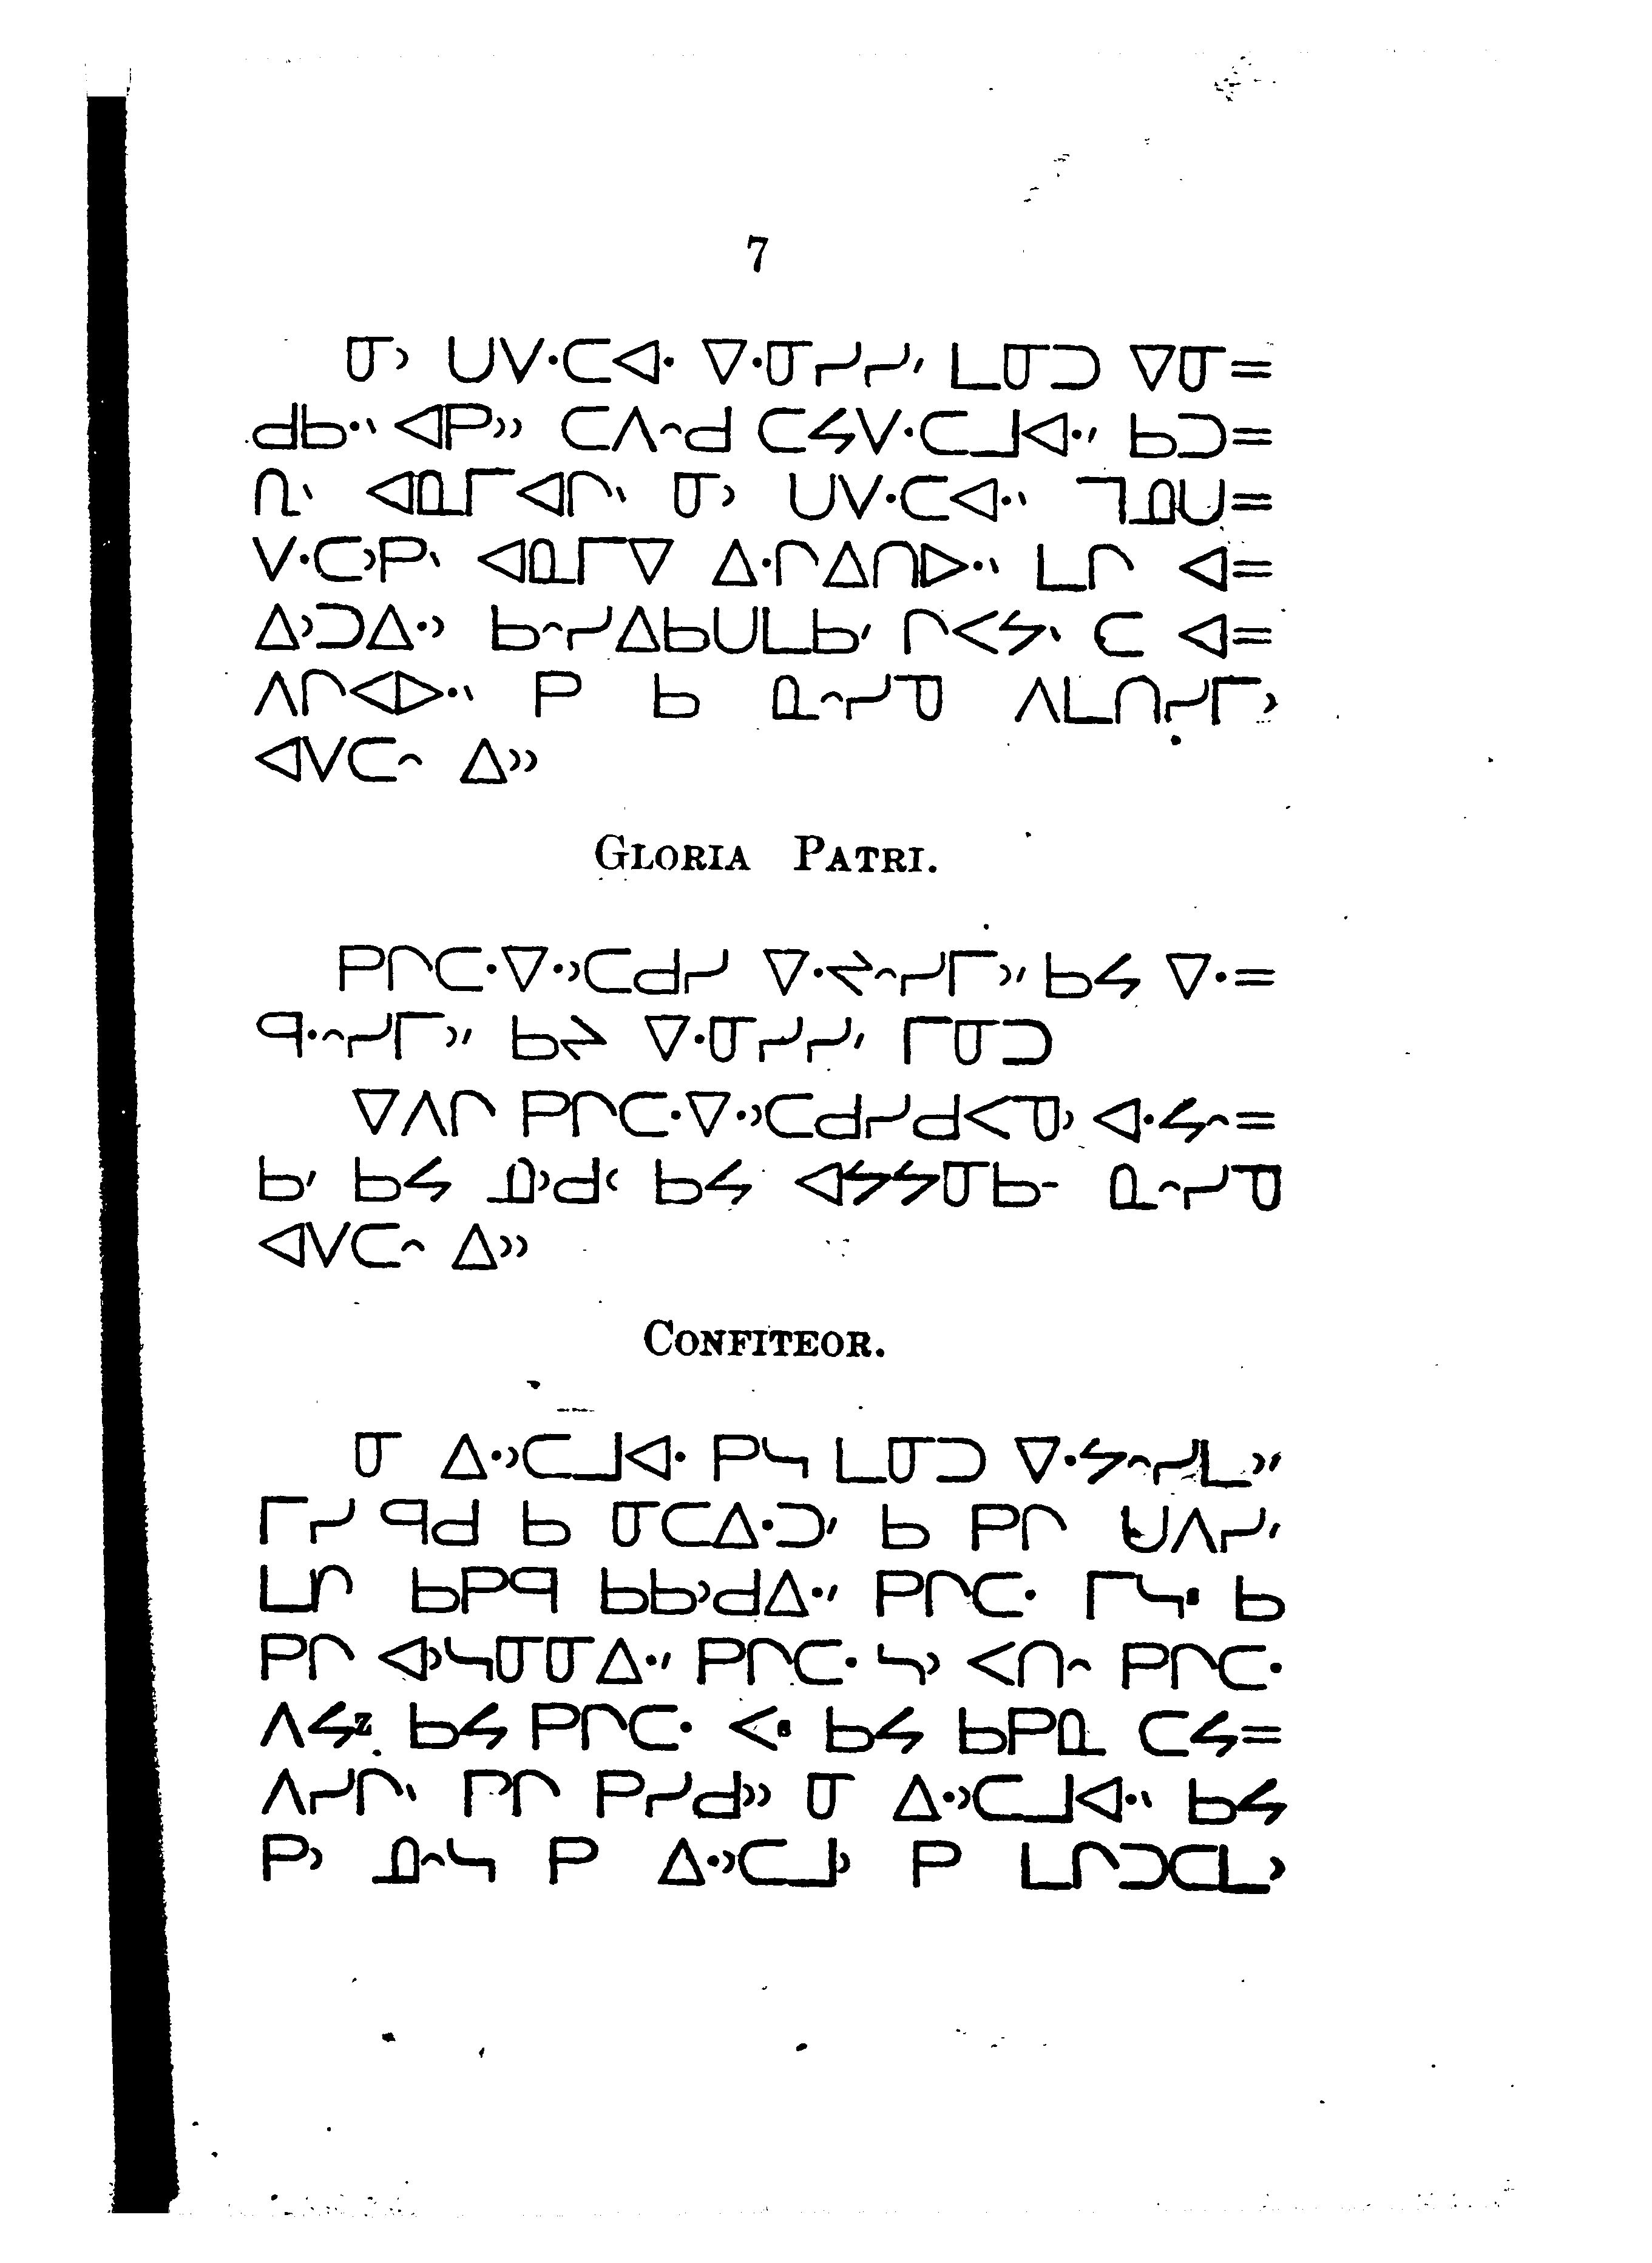 7
ᓂᐣ ᑌᐯᐧᑕᐊᐧ ᐁᐧᓂᓯᓯᐟ ᒪᓂᑐ ᐁᓂ=
ᑯᑲᐧᐠ ᐊᑭᐣᐣ ᑕᐱᐢᑯ ᑕᔕᐯᐧᑕᒧᐊᐧᐟ ᑲᑐ=
ᑎᐠ ᐊᓇᒥᐊᒋᐠ ᓂᐣ ᑌᐯᐧᑕᐊᐧᐠ ᒣᓄᑌ=
ᐯᐧᑕᐣᑭᐠ ᐊᓇᒥᐁ ᐃᐧᒋᐃᑎᐅᐧᐠ ᒪᒋ ᐊ=
ᐃᐣᑐᐃᐧᐣ ᑲᐢᓯᐃᑲᑌᒪᑲᐟ ᒋᐸᔕᐠ ᑕ ᐊ=
ᐱᒋᐸᐅᐧᐠ ᑭ ᑲ ᓇᐢᓯᓀ ᐱᒪᑎᓯᒥᐣ
ᐊᐯᑕᐢ ᐃᐣᐣ
GLORIA PATRI.
ᑭᒋᑕᐧᐁᐧᐣᑕᑯᓯ ᐁᐧᔦᐢᓯᒥᐣᐟ ᑲᔕ ᐁᐧ=
ᑫᐧᐢᓯᒥᐣᐟ ᑲᔦ ᐁᐧᓂᓯᓯᐟ ᒥᓂᑐ
ᐁᐱᒋ ᑭᒋᑕᐧᐁᐧᐣᑕᑯᓯᑯᐸᓀᐣ ᐊᐧᔕᐢ=
ᑲᐟ ᑲᔕ ᓄᐣᑯᑦ ᑲᔕ ᐊᔕᔕᓂᑲᐨ ᓇᐢᓯᓀ
ᐊᐯᑕᐢ ᐃᐣᐣ
CONFITEOR.
ᓂ ᐃᐧᐣᑕᒧᐊᐧ ᑭᓴ ᒪᓂᑐ ᐁᐧᔕᐢᓯᒪᐣᐟ
ᒥᓯ ᑫᑯ ᑲ ᓂᑕᐃᐧᑐᐟ ᑲ ᑭᒋ ᑌᐱᓯᐟ
ᒪᒋ ᑲᑭᑫ ᑲᑲᐣᑯᐃᐧᐟ ᑭᒋᑕᐧ ᒥᓴᐧ ᑲ
ᑭᒋ ᐊᐣᓴᓂᓂᐃᐧᐟ ᑭᒋᑕᐧ ᓴᐣ ᐸᑎᐢ ᑭᒋᑕᐧ
ᐱᔕz ᑲᔕ ᑭᒋᑕᐧ ᐸᐧ ᑲᔕ ᑲᑭᓇ ᑕᔕ=
ᐱᓯᒋᐠ ᒋᒋ ᑭᓯᑯᐣᐣ ᓂ ᐃᐧᐣᑕᒧᐊᐧᐠ ᑲᔕ
ᑭᐣ ᓄᐢᓴ ᑭ ᐃᐧᐣᑕᒧᐣ ᑭ ᒪᒋᑐᑕᒪᐣ